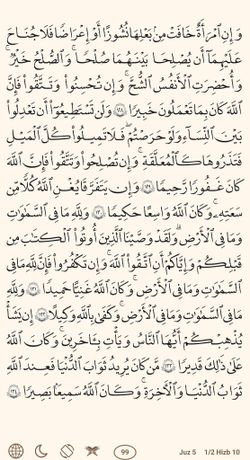 وَإِنِ ٱمْرَأَةٌ خَافَتْ مِنۢ بَعْلِهَا نُشُوزًا أَوْ إِعْرَاضًا فَلَا جُنَاحَ
عَلَيْهِمَآ أَن يُصْلِحَا بَيْنَهُمَا صُلْحًا ۚ وَٱلصُّلْحُ خَيْرٌ ۗ
وَأُحْضِرَتِ ٱلْأَنفُسُ ٱلشُّحَّ ۚ وَإِن تُحْسِنُوا۟ وَتَتَّقُوا۟ فَإِنَّ
ٱللَّهَ كَانَ بِمَا تَعْمَلُونَ خَبِيرًا ١٢٨ وَلَن تَسْتَطِيعُوٓا۟ أَن تَعْدِلُوا۟
بَيْنَ ٱلنِّسَآءِ وَلَوْ حَرَصْتُمْ ۖ فَلَا تَمِيلُوا۟ كُلَّ ٱلْمَيْلِ
فَتَذَرُوهَا كَٱلْمُعَلَّقَةِ ۚ وَإِن تُصْلِحُوا۟ وَتَتَّقُوا۟ فَإِنَّ ٱللَّهَ
كَانَ غَفُورًا رَّحِيمًا ١٢٩ وَإِن يَتَفَرَّقَا يُغْنِ ٱللَّهُ كُلًّا مِّن
سَعَتِهِۦ ۚ وَكَانَ ٱللَّهُ وَٰسِعًا حَكِيمًا ١٣٠ وَلِلَّهِ مَا فِى ٱلسَّمَٰوَٰتِ
وَمَا فِى ٱلْأَرْضِ ۗ وَلَقَدْ وَصَّيْنَا ٱلَّذِينَ أُوتُوا۟ ٱلْكِتَٰبَ مِن
قَبْلِكُمْ وَإِيَّاكُمْ أَنِ ٱتَّقُوا۟ ٱللَّهَ ۚ وَإِن تَكْفُرُوا۟ فَإِنَّ لِلَّهِ مَا فِى
ٱلسَّمَٰوَٰتِ وَمَا فِى ٱلْأَرْضِ ۚ وَكَانَ ٱللَّهُ غَنِيًّا حَمِيدًا ١٣١ وَلِلَّهِ
مَا فِى ٱلسَّمَٰوَٰتِ وَمَا فِى ٱلْأَرْضِ ۚ وَكَفَىٰ بِٱللَّهِ وَكِيلًا ١٣٢ إِن يَشَأْ
يُذْهِبْكُمْ أَيُّهَا ٱلنَّاسُ وَيَأْتِ بِـَٔاخَرِينَ ۚ وَكَانَ ٱللَّهُ
عَلَىٰ ذَٰلِكَ قَدِيرًا ١٣٣ مَّن كَانَ يُرِيدُ ثَوَابَ ٱلدُّنْيَا فَعِندَ ٱللَّهِ
ثَوَابُ ٱلدُّنْيَا وَٱلْـَٔاخِرَةِ ۚ وَكَانَ ٱللَّهُ سَمِيعًۢا بَصِيرًا ١٣٤
99 Juz 5 1/2 Hizb 10